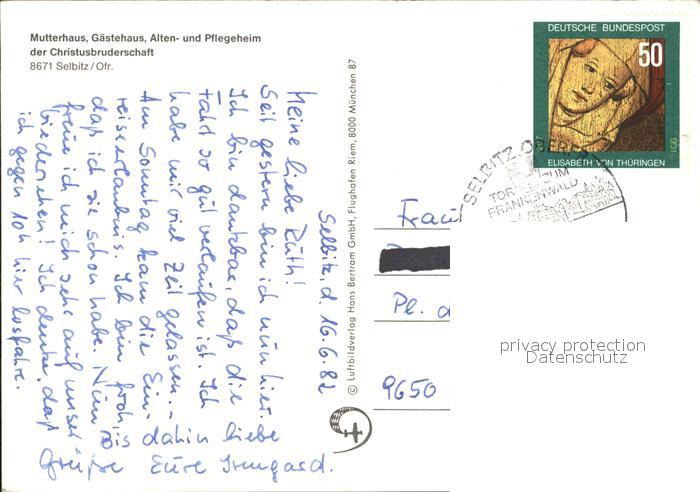 Mutterhaus, Gästehaus, Alten- und Pflegeheim
der Christusbruderschaft
8671 Selbitz/Ofr.
Selbitz, d. 16.6.82
Meine liebe Ruth!
Seit gestern bin ich nun hier.
Ich bin dankbar, daß die
Fahrt so gut verlaufen ist. Ich
habe mir viel Zeit gelassen.
Am Sonntag kam die Ein-
reiseerlaubnis. Ich bin froh,
daß ich sie schon habe. Nun
freue ich mich sehr auf unser
Wiedersehen! Ich denke, daß
ich gegen 10h hier losfahre.
Bis dahin liebe
Grüße Eure Irmgard.
© Luftbildverlag Hans Bertram GmbH, Flughafen Riem, 8000 München 87
DEUTSCHE BUNDESPOST
50
1207 1231
ELISABETH VON THÜRINGEN
SELBITZ, OBERFR
TOR ZUM
FRANKENWALD
Frau
Pl.
9650
privacy protection
Datenschutz